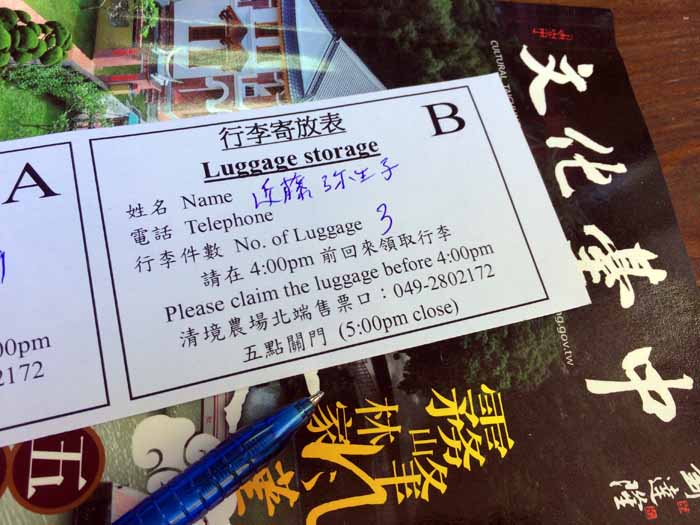 B
行李寄放表
Luggage storage
姓名 Name 近藤弥生子
電話 Telephone
行李件數 No. of Luggage 3
請在 4:00pm 前回來領取行李
Please claim the luggage before 4:00pm
清境農場北端售票口：049-2802172
五點關門 (5:00pm close)
A
00pm
2172
文化臺中
CULTURAL TAI
ng.gov.tw
霧峰
林家
五